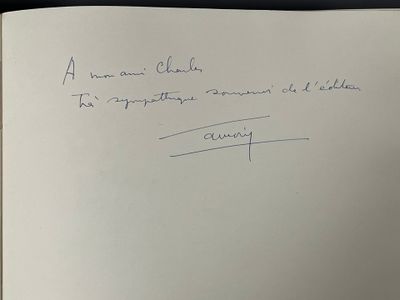 A mon ami Charles
Très sympathique souvenir de l'éditeur